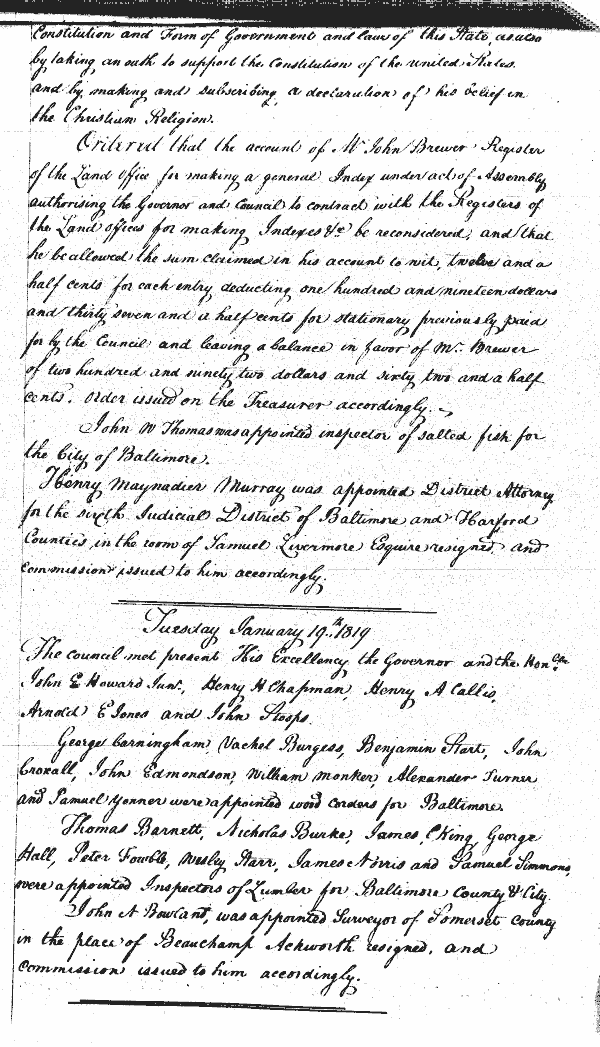 Constitution and Form of Government and laws of this State, as also
by taking an oath to support the Constitution of the united States.
and by making and subscribing a declaration of his belief in
the Christian Religion.
Ordered that the account of Mr John Brewer Register
of the Land office for making a general Index under act of Assembly
authorising the Governor and Council to contract with the Registers of
the Land offices for making Indexes &c be reconsidered, and that
he be allowed the sum claimed in his account to wit, twelve and a
half cents for each entry deducting one hundred and nineteen dollars
and thirty seven and a half cents for stationary previously paid
for by the Council and leaving a balance in favor of Mr. Brewer
of two hundred and ninety two dollars and sixty two and a half
cents. order issued on the Treasurer accordingly.
John W Thomas was appointed inspector of salted fish for
the City of Baltimore.
Henry Maynadier Murray was appointed District Attorney
for the sixth Judicial District of Baltimore and Harford
Counties, in the room of Samuel Livermore Esquire resigned, and
commission issued to him accordingly.
Tuesday January 19th 1819
The council met present His Excellency the Governor and the Honble
John E Howard Junr., Henry H Chapman, Henry A Callis,
Arnold E Jones and John Stoops.
George Carningham, Vachel Burgess, Benjamin Hart, John
Croxall, John Edmondson, William Monker, Alexander Turner
and Samuel Yonner were appointed wood corders for Baltimore.
Thomas Barnett, Nicholas Burke, James C King, George
Hall, Peter Fowble, Wesley Starr, James Norris and Samuel Simmons,
were appointed Inspectors of Lumber for Baltimore County & City.
John A Bowland, was appointed Surveyor of Somerset County
in the place of Beauchamp Ackworth resigned, and
commission issued to him accordingly.